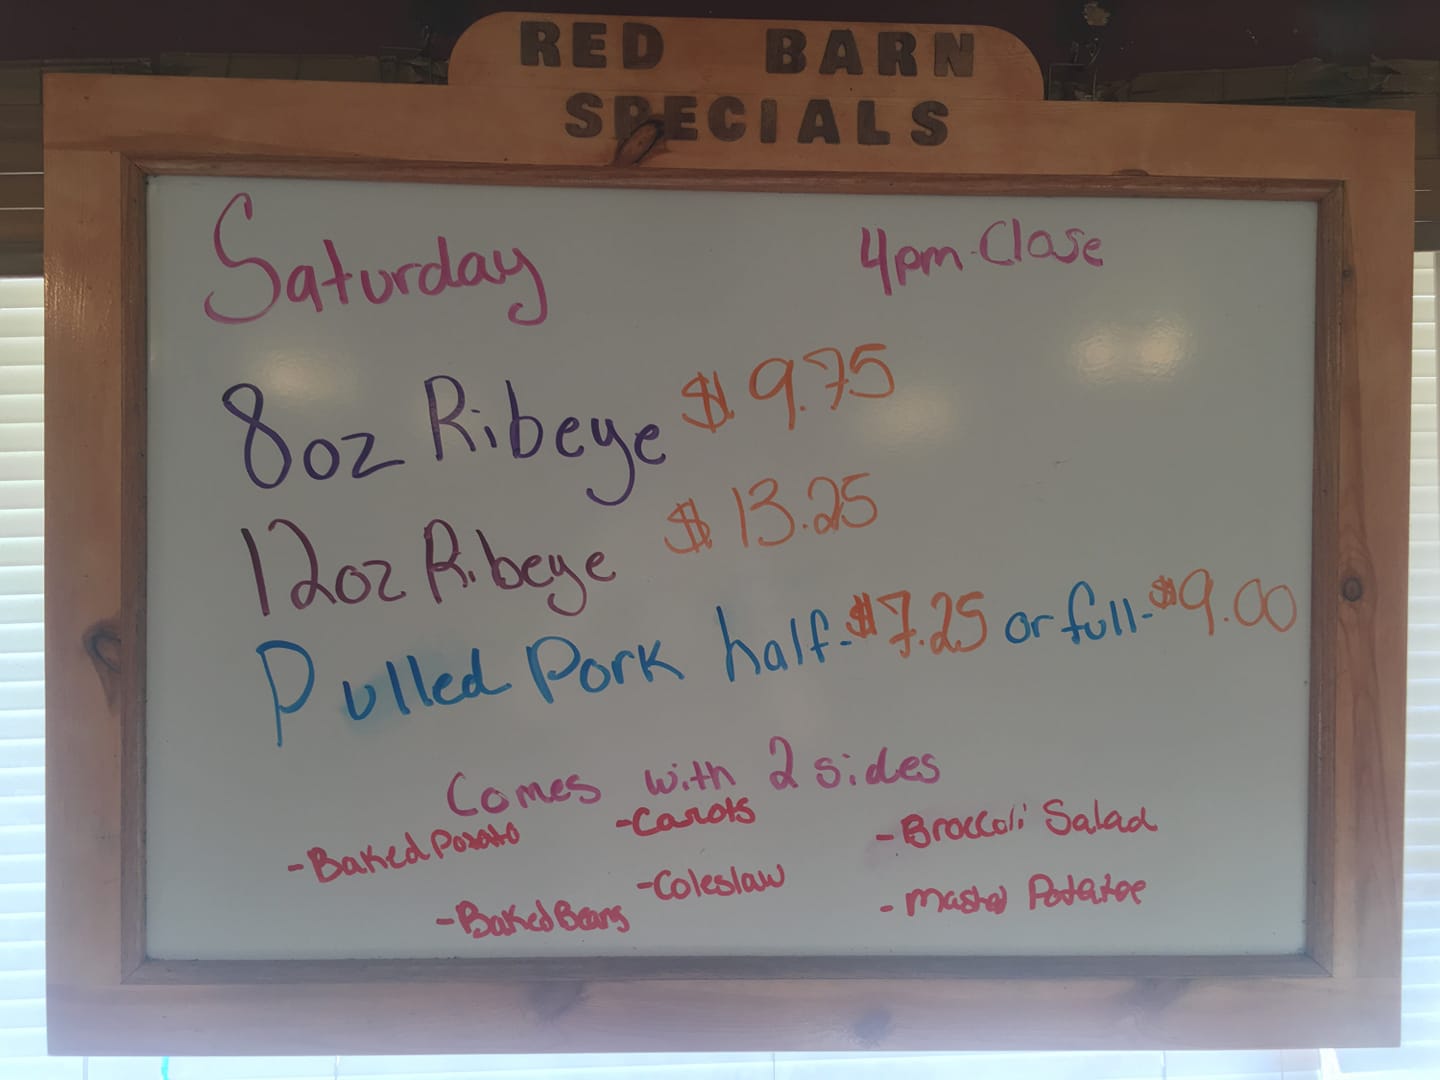 RED BARN
SPECIALS
Saturday 4pm-Close
8oz Ribeye $9.75
12oz Ribeye $13.25
Pulled Pork half-$7.25 or full-$9.00
Comes with 2 sides
-Baked Potato -Carots -Broccoli Salad
-Baked Beans -Coleslaw - Mashed Potatoe